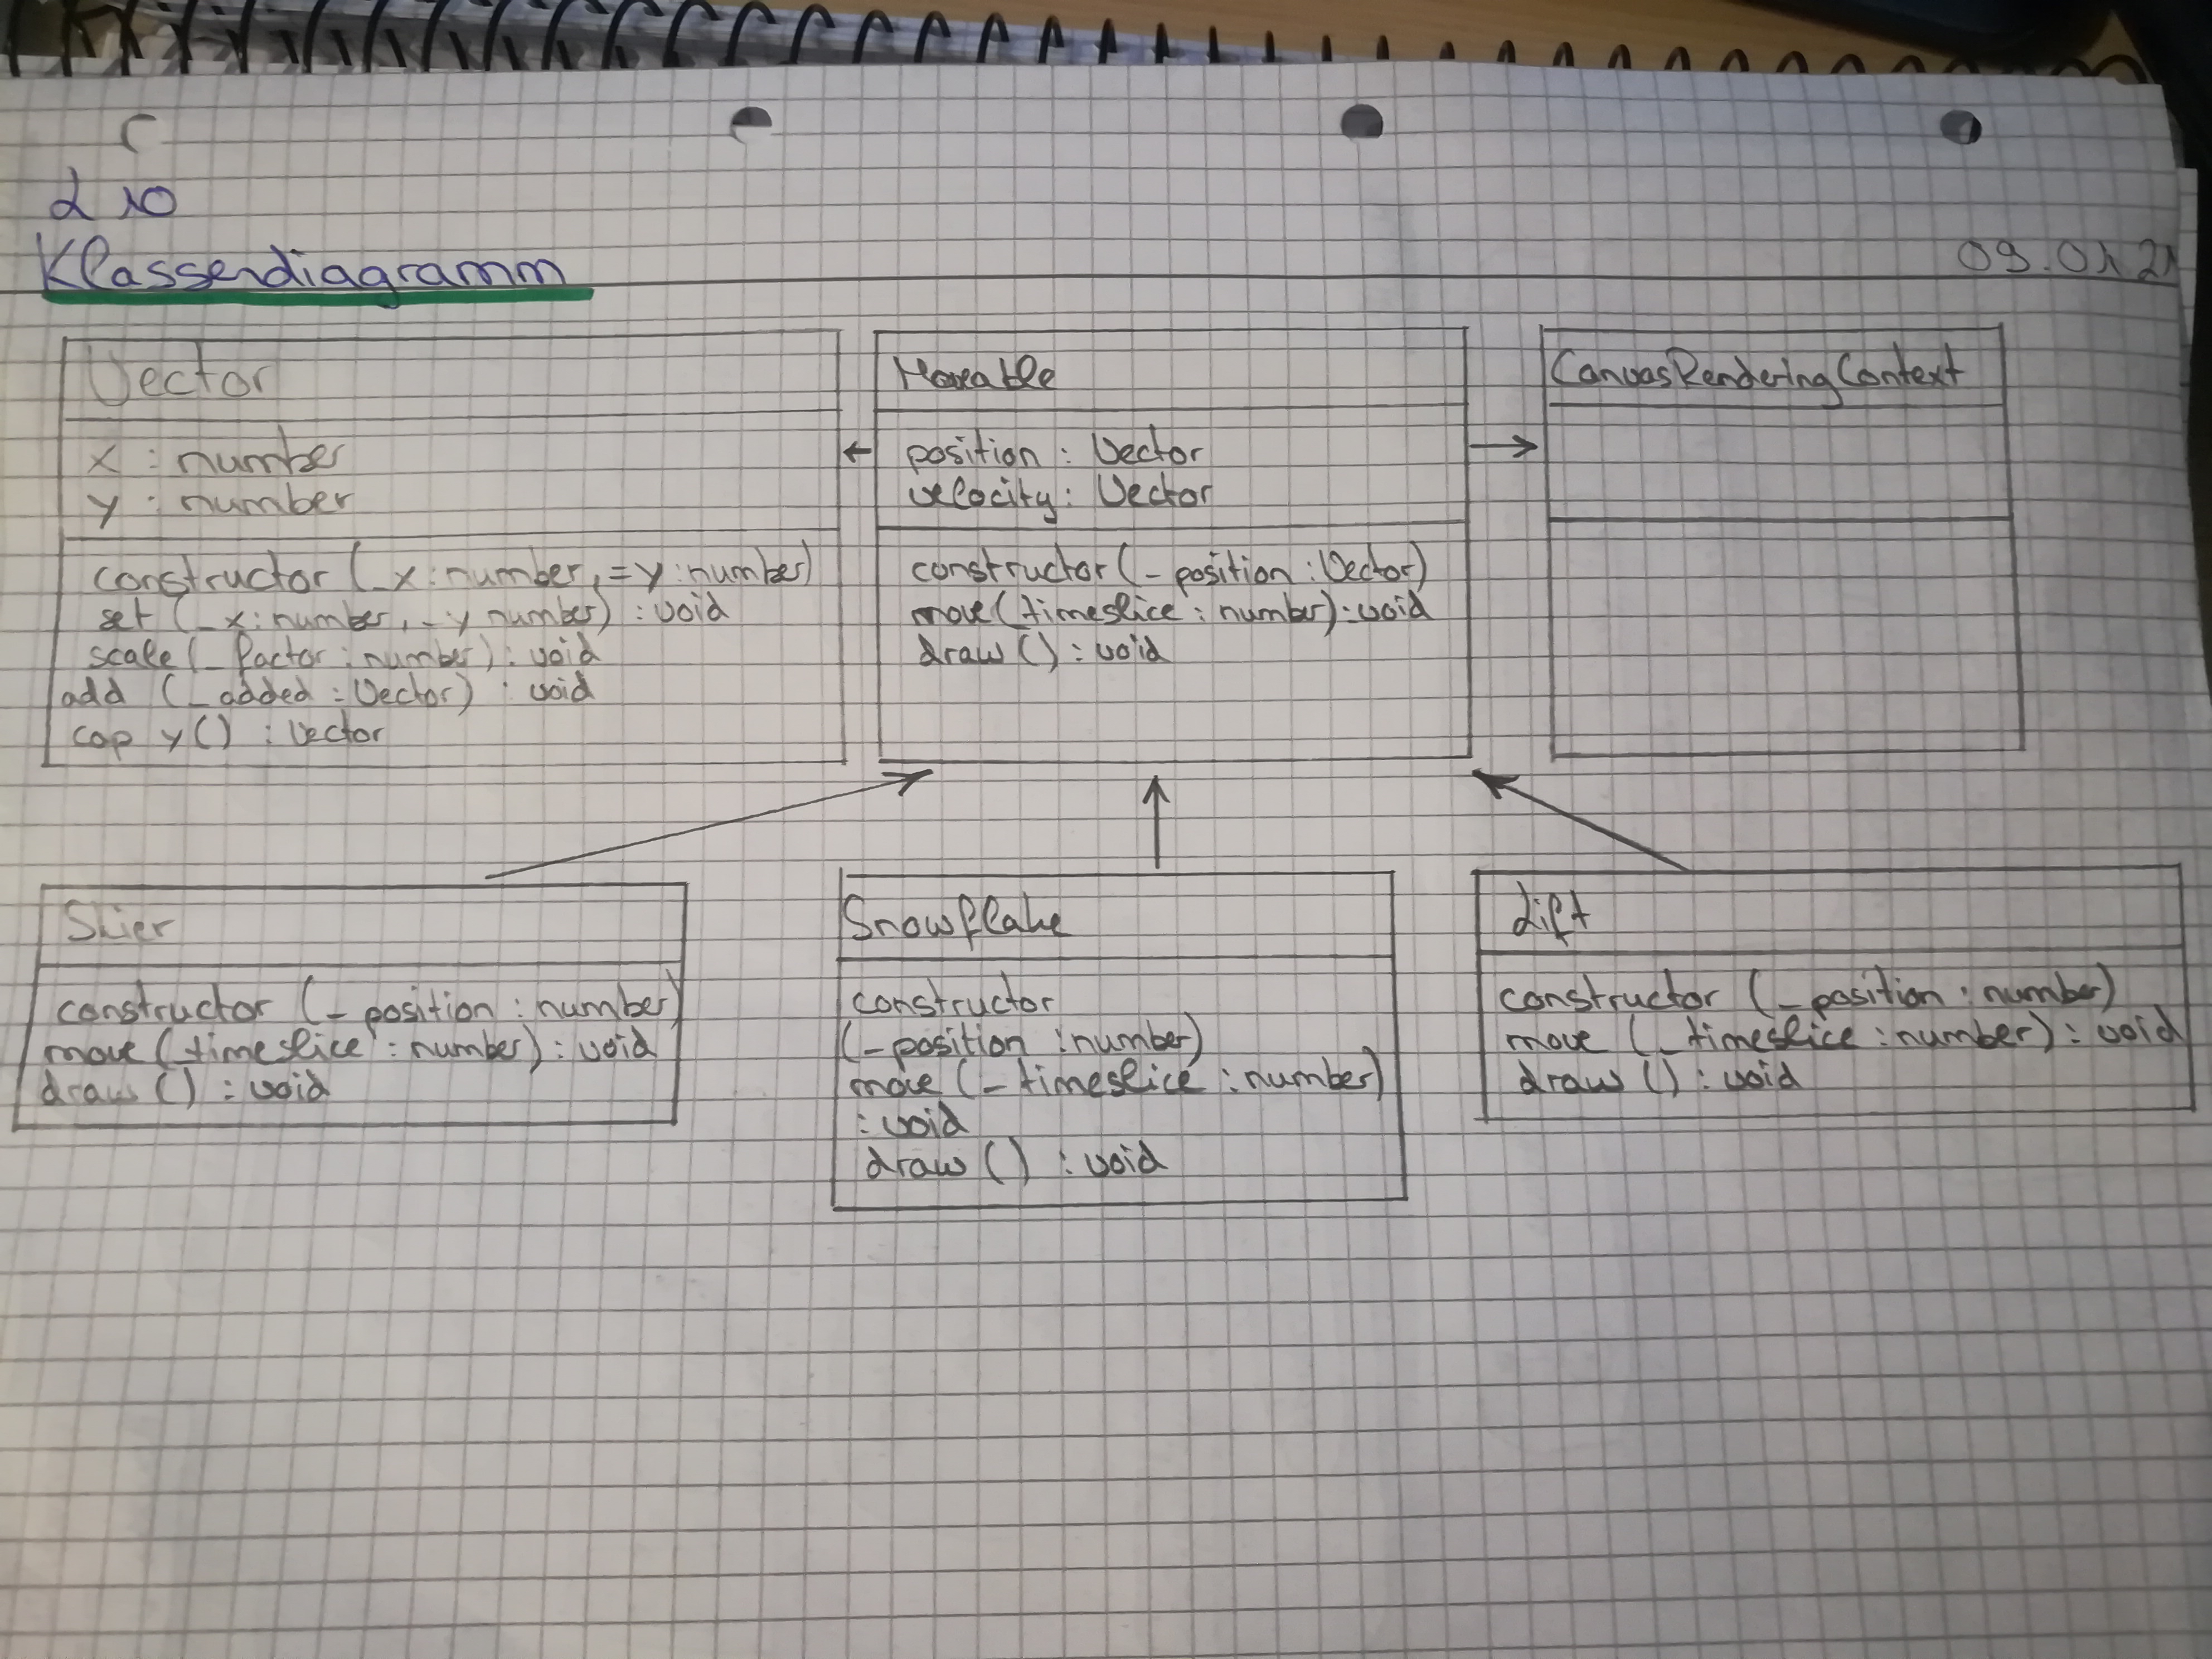 L10
Klassendiagramm
09.01.21
Vector
x : number
y : number
constructor (_x : number, =y : number)
set (_x : number, _y number) : void
scale (_factor : number) : void
add (_added : Vector) : void
cop y() : Vector
Moveable
position : Vector
velocity : Vector
constructor (_position : Vector)
move (timeslice : number) : void
draw () : void
CanvasRenderingContext
Skier
constructor (_position : number)
move (_timeslice : number) : void
draw () : void
Snowflake
constructor
(_position : number)
move (_timeslice : number)
: void
draw () : void
Lift
constructor (_position : number)
move (_timeslice : number) : void
draw () : void